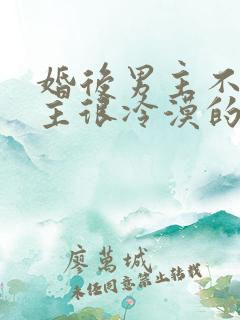 婚後男主不
主很冷漠的
廖萬城
未经同意禁止转载